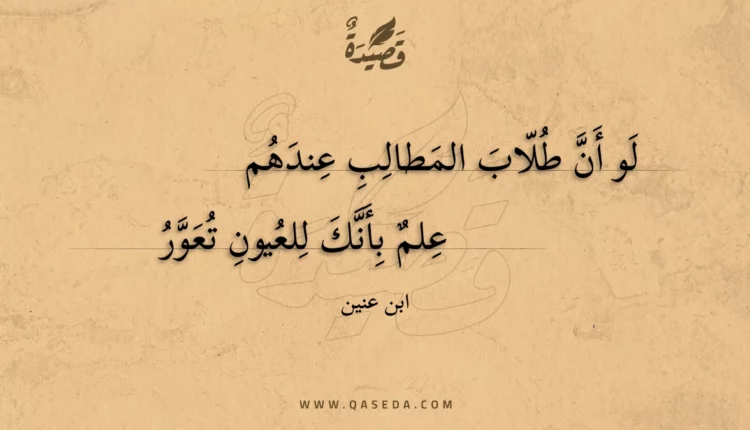 قَصِيْدَةٌ
لَو أَنَّ طُلّابَ المَطالِبِ عِندَهُم
عِلمٌ بِأَنَّكَ لِلعُيونِ تُعَوَّرُ
ابن عنين
WWW.QASEDA.COM